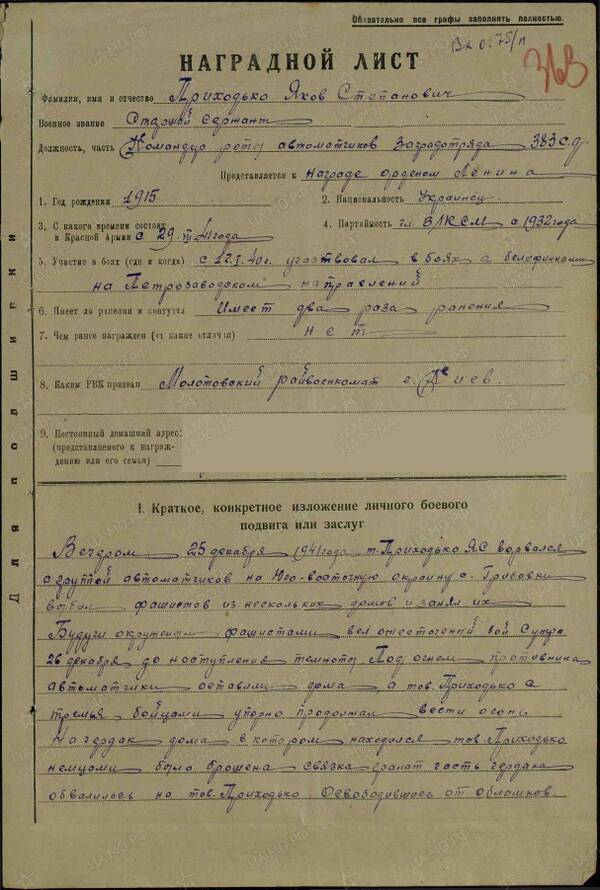 Обязательно все графы заполнять полностью.
НАГРАДНОЙ ЛИСТ
Фамилия, имя и отчество Приходько Яков Степанович
Военное звание Старший сержант
Должность, часть Командир роты автоматчиков Заградотряда 383 с.д.
Представляется к награде орденом Ленина
1. Год рождения 1915 2. Национальность Украинец
3. С какого времени состоит в Красной Армии с 29. 41 года 4. Партийность ВЛКСМ с 1932 года
5. Участие в боях (где и когда) 40 г. участвовал в боях с белофиннами
на Петрозаводском направлений
6. Имеет ли ранения и контузии Имеет два раза ранения
7. Чем ранее награжден (за какие отличия) нет
8. Каким РВК призван Молотовский райвоенкомат г. Киев.
9. Постоянный домашний адрес:
(представляемого к награж-
дению или его семьи)
I. Краткое, конкретное изложение личного боевого
подвига или заслуг
Вечером 25 декабря 1941 года т. Приходько ЯС ворвался
с группой автоматиков на Юго-восточную окраину с.
выбил фашистов из нескольких домов и занял их
Будучи окружен фашистами вел ожесточений бой Сутра
26 декабря до наступления темноты Под огнем противника
автоматчики оставили дома а тов. Приходько с
тремья бойцами упорно продолжал вести огонь
На чердак дома в котором находился тов. Приходько
немцами была брошена связка гранат часть чердака
обвалилось на тов. Приходько. Освободившись от обломков.
Для подшивки